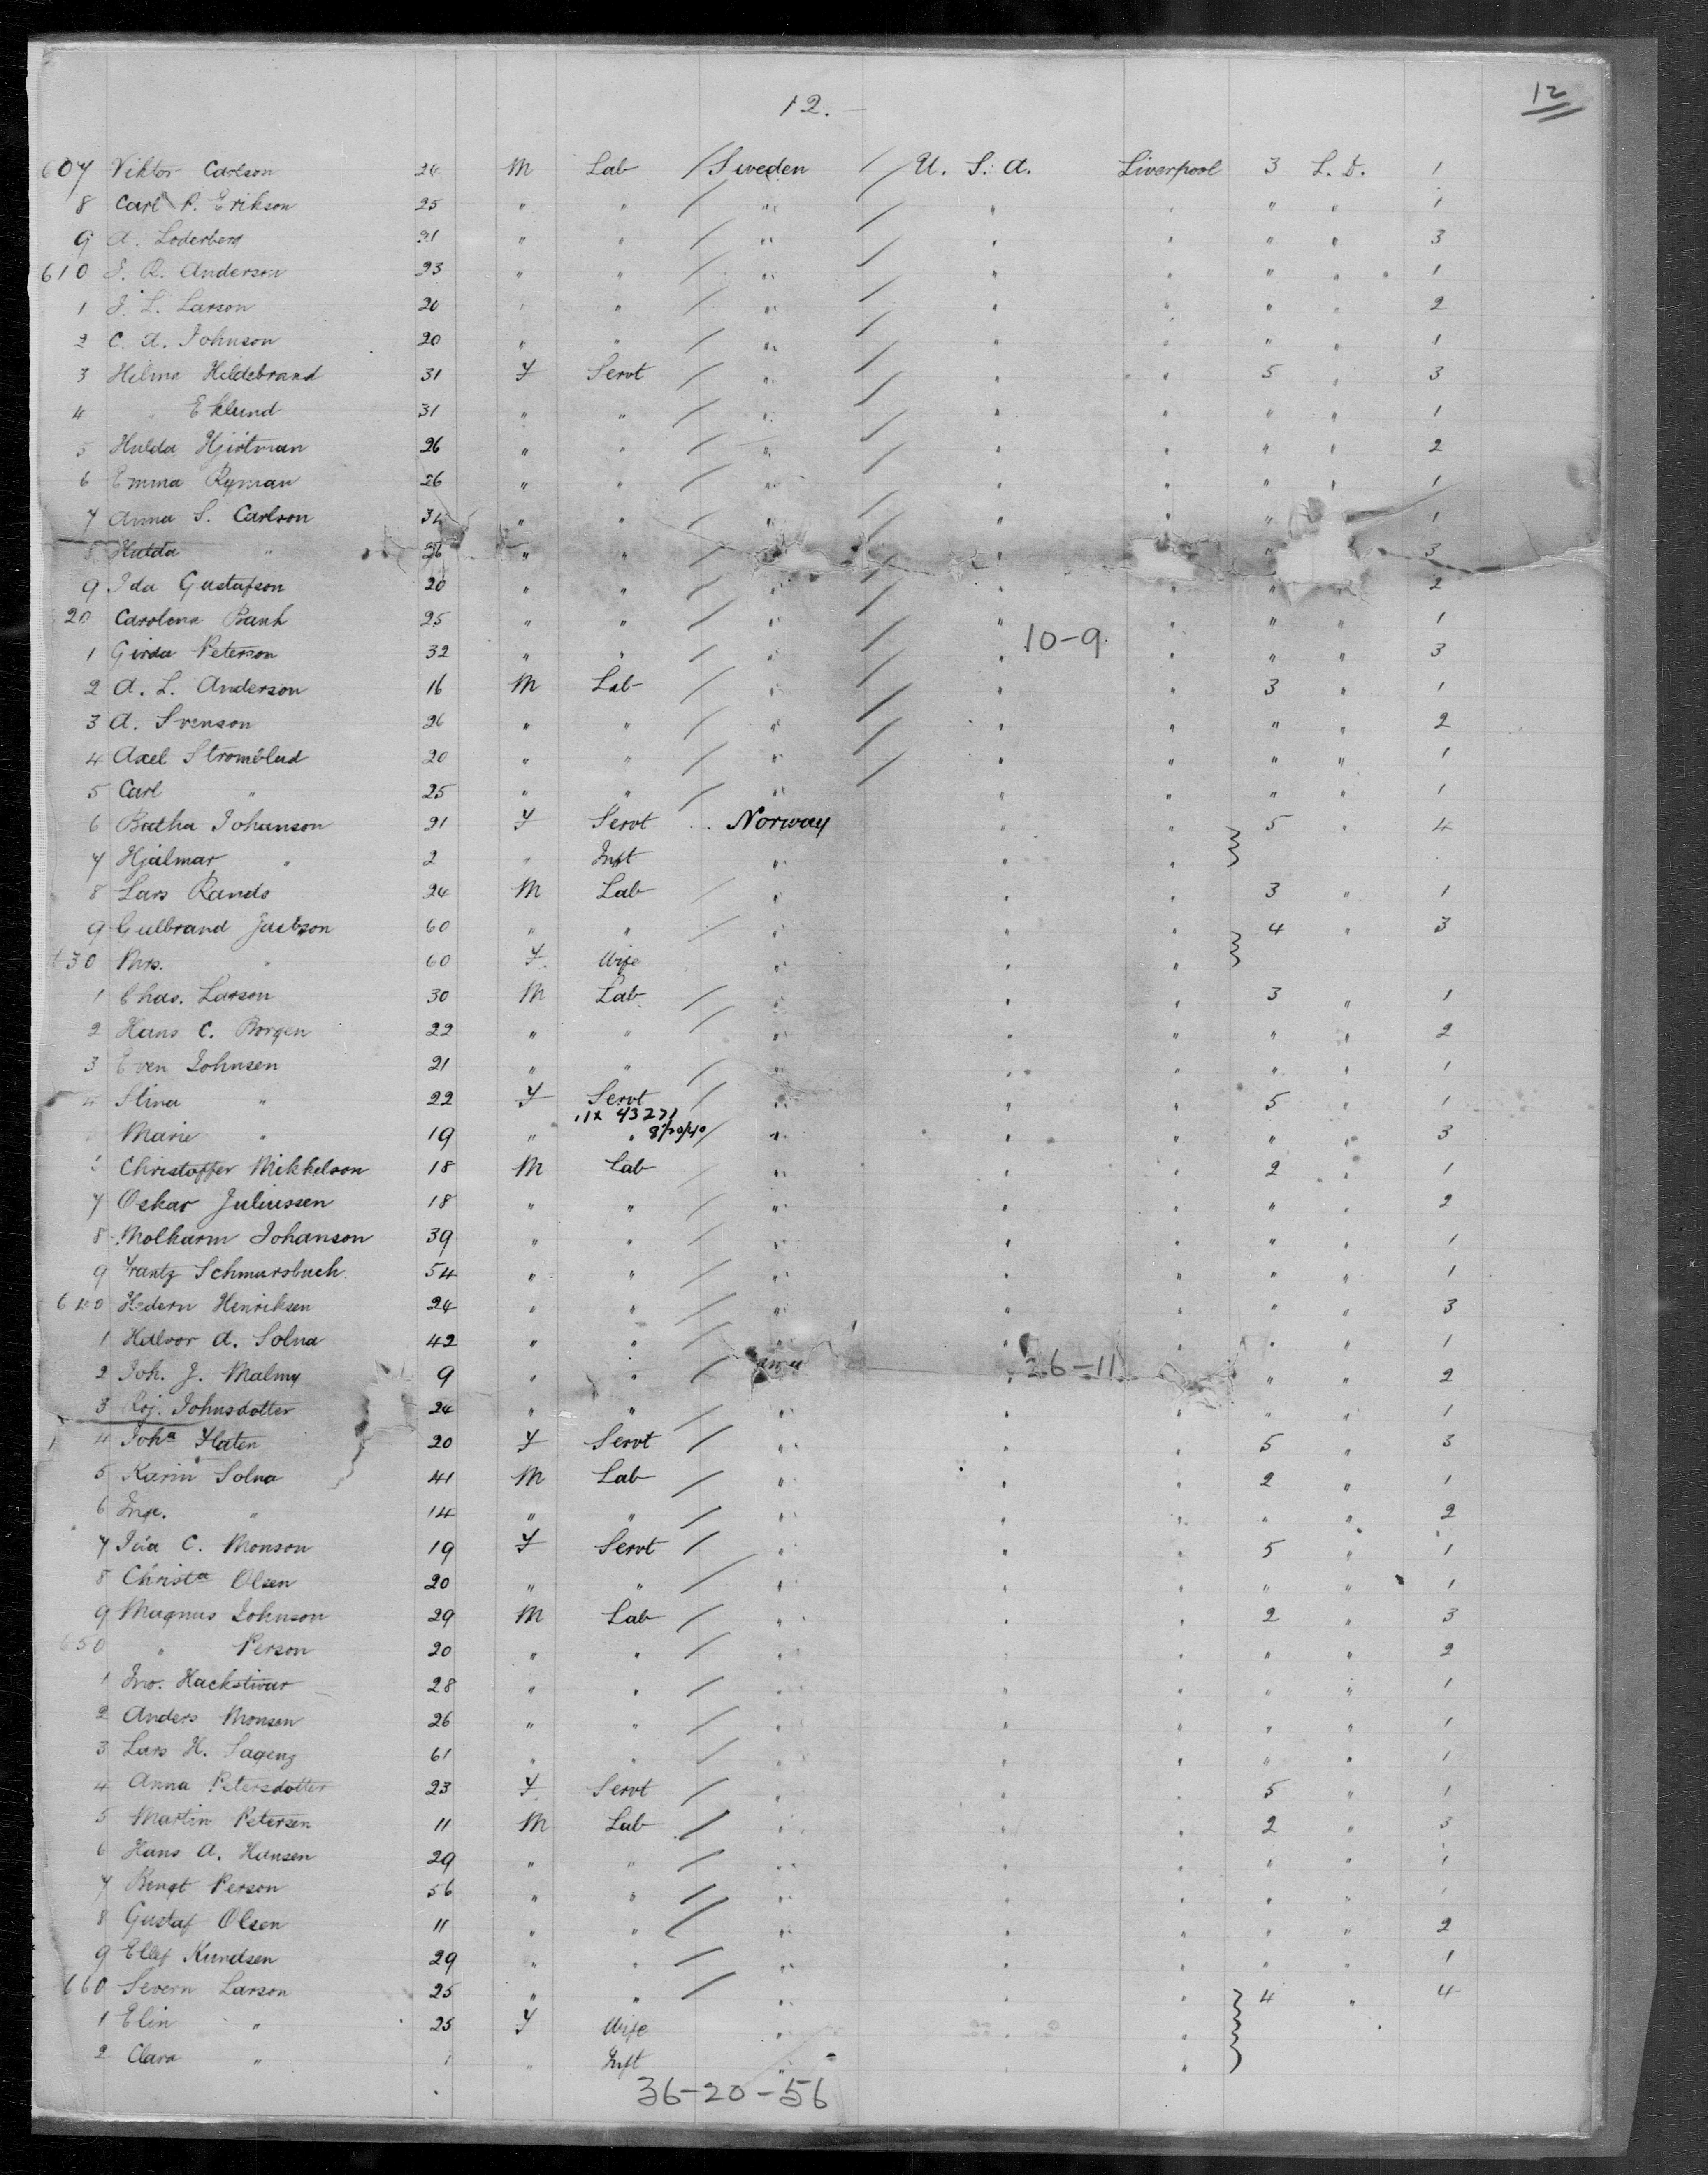 12.
12
607 Viktor Carlson 24 M Lab Sweden U. S. A. Liverpool 3 L. D. 1
8 Carl P. Erikson 25 " " " " " " " 1
9 A. Soderberg 21 " " " " " " " 3
610 J. R. Anderson 23 " " " " " " " 1
1 J. L. Larson 20 " " " " " " " 2
2 C. A. Johnson 20 " " " " " " " 1
3 Hilma Hildebrand 31 F Servt " " " 5 " 3
4 " Eklund 31 " " " " " " " 1
5 Hulda Hjortman 26 " " " " " " " 2
6 Emma Ryman 26 " " " " " " " 1
7 Anna S. Carlson 34 " " " " " 1
8 Hulda " 26 " " " " " 3
9 Ida Gustafson 20 " " " " " " 2
20 Carolina Bank 25 " " " " " " " 1
10-9
1 Girda Peterson 32 " " " " " " " 3
2 A. L. Anderson 16 M Lab " " " 3 " 1
3 A. Svenson 26 " " " " " " " 2
4 Axel Stromblad 20 " " " " " " " 1
5 Carl " 25 " " " " " " " 1
6 Batha Johanson 21 F Servt Norway " " 5 " 4
7 Hjalmar " 2 " Inft " " "
8 Lars Rando 24 M Lab " " " 3 " 1
9 Gulbrand Jacobson 60 " " " " " 4 " 3
630 Mrs. " 60 F Wife " " "
1 Chas. Larson 30 M Lab " " " 3 " 1
2 Hans C. Borgen 22 " " " " " " " 2
3 Even Johnsen 21 " " " " " " " 1
4 Stina " 22 F Servt " " " 5 " 1
11x 43271
8/20/40
Marie " 19 " " " " " " " 3
Christoffer Mikkelson 18 M Lab " " " 2 " 1
7 Oskar Juliussen 18 " " " " " " " 2
8 Molkarm Johanson 39 " " " " " " " 1
9 Frantz Schmursbach 54 " " " " " " " 1
640 Hedern Henriksen 24 " " " " " " " 3
1 Halvor A. Solna 42 " " " " " " " 1
26-11
2 Joh. J. Malmy 9 " " " " " " 2
3 Johnsdotter 24 " " " " " " " 1
4 Joha Flaten 20 F Servt " " " 5 " 3
5 Karin Solna 41 M Lab " " " 2 " 1
6 Inge. " 14 " " " " " " " 2
7 Ida C. Monson 19 F Servt " " " 5 " 1
8 Christa Olsen 20 " " " " " " " 1
9 Magnus Johnson 29 M Lab " " " 2 " 3
650 " Person 20 " " " " " " " 2
1 Jno. Hackstivar 28 " " " " " " " 1
2 Anders Monsen 26 " " " " " " " 1
3 Lars H. Sageng 61 " " " " " " " 1
4 Anna Petersdotter 23 F Servt " " " 5 " 1
5 Martin Petersen 11 M Lab " " " 2 " 3
6 Hans A. Hansen 29 " " " " " " " 1
7 Bengt Person 56 " " " " " " " 1
8 Gustaf Olsen 11 " " " " " " " 2
9 Ellef Kundsen 29 " " " " " " " 1
660 Severn Larson 25 " " " " " 4 " 4
1 Elin " 25 F Wife " " "
2 Clara " 1 " Inft " " "
36-20-56